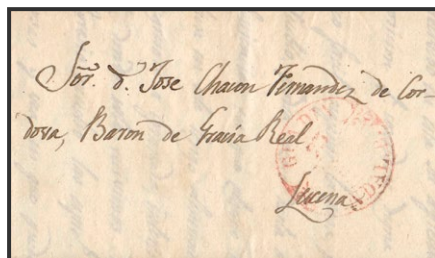 Sor. d. Jose Chacon Fernandez de Cor-
dova, Baron de Gracia Real
Lucena